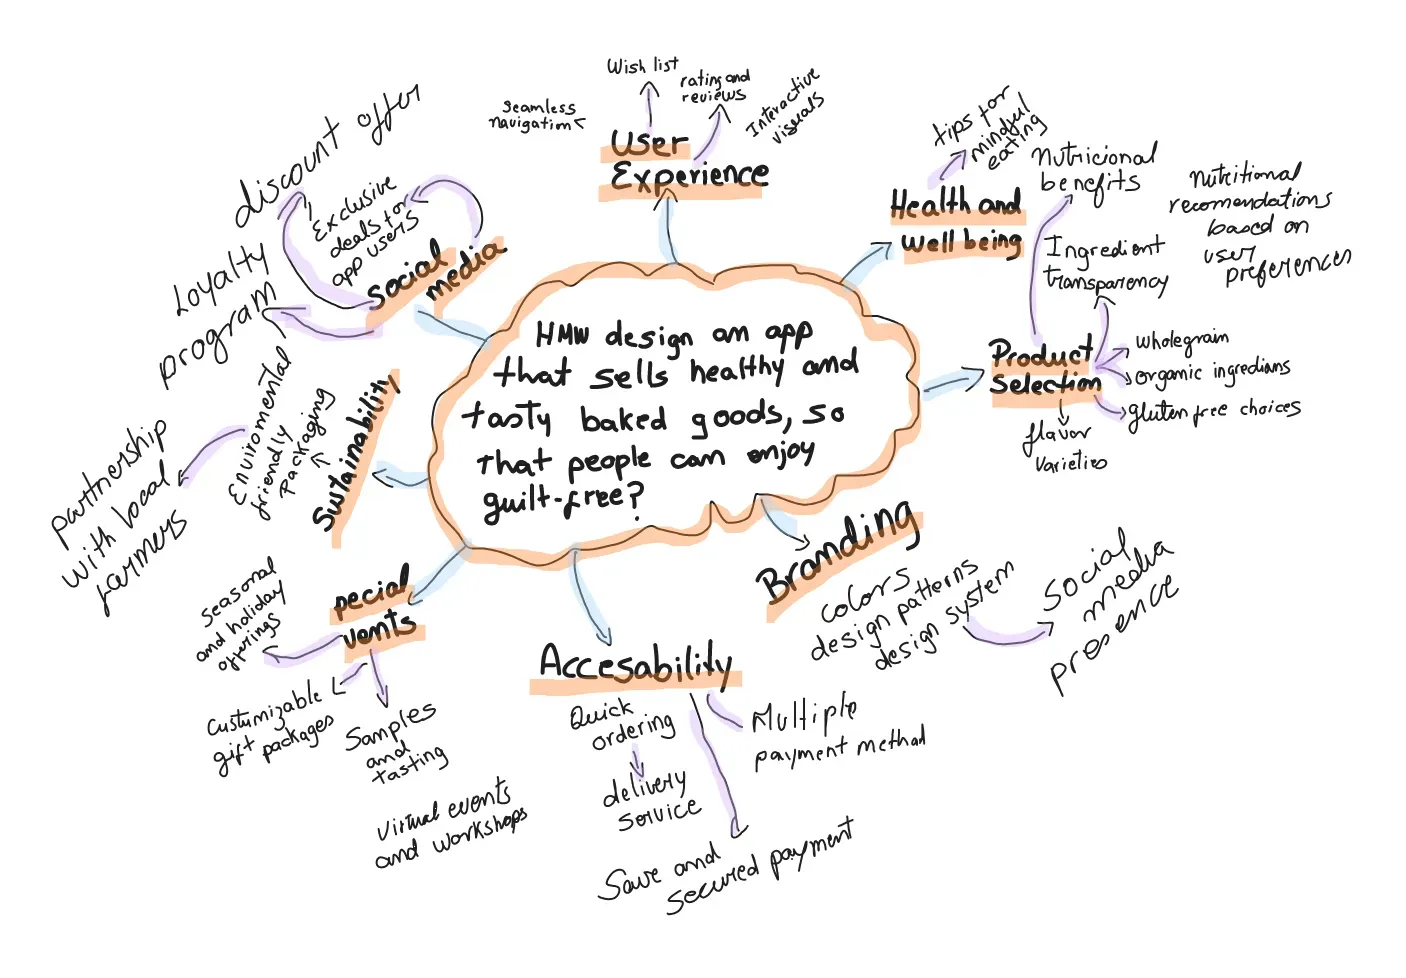 HMW design an app
that sells healthy and
tasty baked goods, so
that people can enjoy
guilt-free?
User
Experience
Seamless
navigation
Wish list
rating and
reviews
Interactive
visuals
Health and
well being
tips for
mindful
eating
Product
Selection
Nutricional
benefits
Ingredient
transparency
Nutritional
recomendations
based on
user
preferences
wholegrain
organic ingredians
gluten free choices
flavor
varieties
Branding
colors
design patterns
design system
Social
media
presence
Accesability
Quick
ordering
delivery
service
Multiple
payment method
Save and
secured payment
pecial
vents
Seasonal
and holiday
offerings
Custumizable
gift packages
Samples
and
tasting
Virtual events
and workshops
Sustainability
Enviromental
friendly
packaging
partnership
with local
farmers
Social
media
discount offer
Exclusive
deals for
app users
Loyalty
program